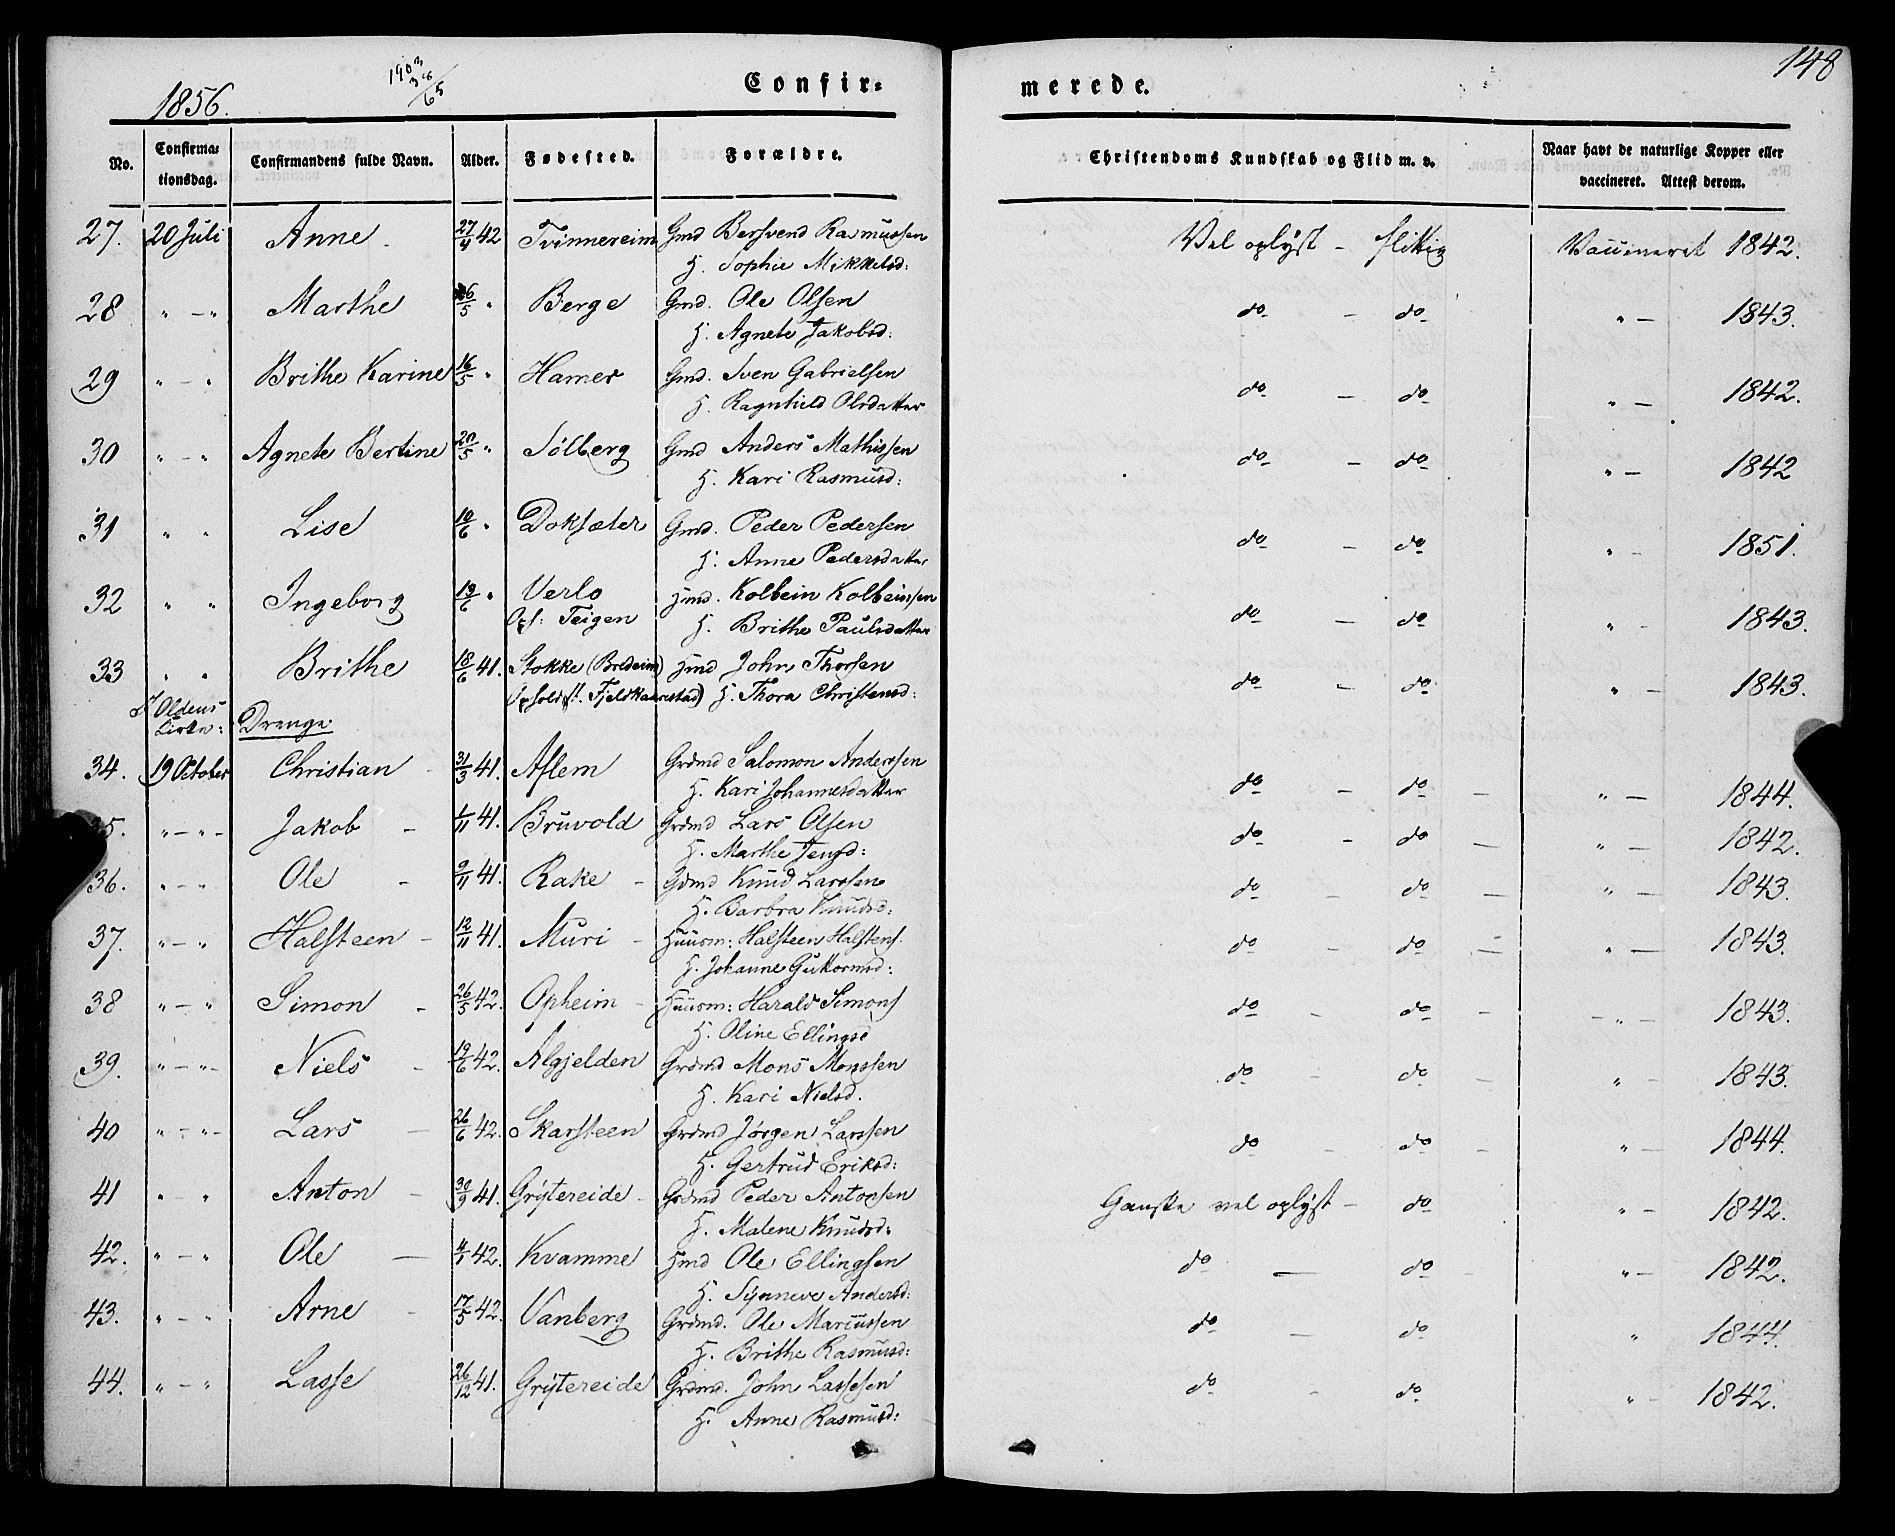 148
1856.
Confir=
merede.
No. Confirma= tionsdag. Confirmandens fulde Navn. Alder. Fødested. Forældre. Christendoms Kundskab og Flid m. v. Naar havt de naturlige Kopper eller vaccineret. Attest derom.
27. 20 Juli Anne 27/4 42 Tvinnereim Gmd Bersvend Rasmussen Vel oplyst - flittig Vaccineret 1842.
H. Sophie Mikkelsd:
28 " - " Marthe 5 " Berge Gmd. Ole Olsen do - do " - 1843.
H. Agnete Jakobsd:
29 " - " Brithe Karine 16/5 " Hamer Gmd. Sven Gabrielsen do - do " - 1842.
H. Ragnhild Olsdatter
30 " - " Agnete Bertine 20/5 " Sølberg Gmd Anders Mathissen do - do " - 1842
H. Kari Rasmusd:
31 " " Lise 10/6 " Doksæter Gmd. Peder Pedersen do - do " - 1851.
H. Anne Pedersdatter
32 " " Ingeborg 13/6 " Verlo Hmd. Kolbein Kolbeinsen do - do " - 1843.
Ops: Teigen H. Brithe Paulsdatter
33 " " Brithe 18/6 41. Stokke (Bredeim) Hmd John Thorsen do - do " - 1843.
Opholdsst. Fjeldkaarstad) H. Thora Christensd:
I Oldens Kirke: Drenge:
34. 19 October Christian - 31/3 41. Aslem Grdmd Salomon Anderssen do - do - " - 1844.
H. Kari Johannesdatter
35. " - " - Jakob - 1/11 41. Bruvold Grdmd Lars Olsen do - do - " - 1842.
H. Marthe Jensd:
36. " - " Ole - 9/11 41. Rake - Gdmd Knud Larssen do - do - " - 1843.
H. Barbra Knudsd:
37. " - " Halsteen - 12/11 41. Muri - Huusm: Halsteen Halstens. do - do - " - 1843.
H. Johanne Guttormsd:
38 " - " Simon - 26/5 42. Opheim - Huusm: Harald Simons do - do - - " - 1843.
H. Oline Ellingsd
39. " - " - Niels - 19/6 42. Algjelden Grdmd Mons Monssen do - do - " - 1843.
H. Kari Nielsd.
40 " - " - Lars - 26/6 42. Skarsteen Grdmd Jørgen Larssen do - do - " - 1844.
H. Gertrud Eriksd:
41 " - " Anton - 30/9 41. Grytereide - Grdmd Peder Antonsen Ganske vel oplyst - do " - 1842.
H. Malene Knudsd:
42. " - " Ole - 42. Kvamme Hmd Ole Ellingsen do - do - " - 1842.
H. Synneve Andersd:
43. " - " Arne - 17/5 42. Vanberg Grdmd. Ole Mariussen do - do " 1844.
H. Brithe Rasmusd:
44. " - " Lasse 26/12 41. Grytereide Grdmd. John Lassesen do - do " - 1842.
H. Anne Rasmusd: